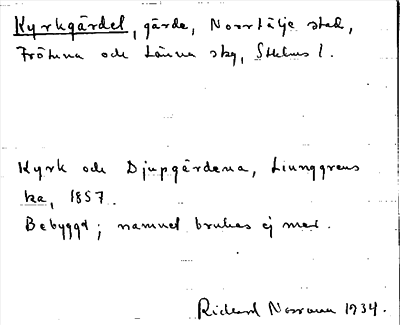 Kyrkgärdet, gärde, Norrtälje stad,
Frötuna och Länna skg, Sthlms l.
Kyrk och Djupgärdena, Ljunggrens
ka, 1857.
Bebyggt; namnet brukas ej mer.
Rickard 1934.